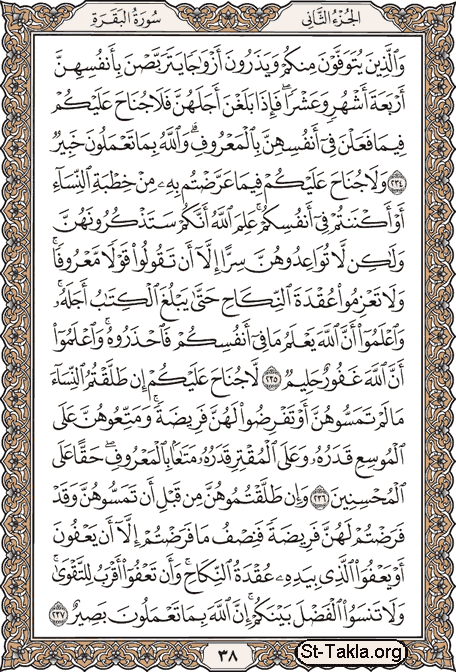 الجزء الثاني سورة البقرة
وَالَّذِينَ يُتَوَفَّوْنَ مِنكُمْ وَيَذَرُونَ أَزْوَاجًا يَتَرَبَّصْنَ بِأَنفُسِهِنَّ
أَرْبَعَةَ أَشْهُرٍ وَعَشْرًا ۖ فَإِذَا بَلَغْنَ أَجَلَهُنَّ فَلَا جُنَاحَ عَلَيْكُمْ
فِيمَا فَعَلْنَ فِي أَنفُسِهِنَّ بِالْمَعْرُوفِ ۗ وَاللَّهُ بِمَا تَعْمَلُونَ خَبِيرٌ
٢٣٤ وَلَا جُنَاحَ عَلَيْكُمْ فِيمَا عَرَّضْتُم بِهِۦ مِنْ خِطْبَةِ النِّسَآءِ
أَوْ أَكْنَنتُمْ فِي أَنفُسِكُمْ ۚ عَلِمَ اللَّهُ أَنَّكُمْ سَتَذْكُرُونَهُنَّ
وَلَٰكِن لَّا تُوَاعِدُوهُنَّ سِرًّا إِلَّا أَن تَقُولُوا قَوْلًا مَّعْرُوفًا ۚ
وَلَا تَعْزِمُوا عُقْدَةَ النِّكَاحِ حَتَّىٰ يَبْلُغَ الْكِتَابُ أَجَلَهُ ۚ
وَاعْلَمُوا أَنَّ اللَّهَ يَعْلَمُ مَا فِي أَنفُسِكُمْ فَاحْذَرُوهُ ۚ وَاعْلَمُوا
أَنَّ اللَّهَ غَفُورٌ حَلِيمٌ ٢٣٥ لَّا جُنَاحَ عَلَيْكُمْ إِن طَلَّقْتُمُ النِّسَآءَ
مَا لَمْ تَمَسُّوهُنَّ أَوْ تَفْرِضُوا لَهُنَّ فَرِيضَةً ۚ وَمَتِّعُوهُنَّ عَلَى
الْمُوسِعِ قَدَرُهُ وَعَلَى الْمُقْتِرِ قَدَرُهُ مَتَاعًا بِالْمَعْرُوفِ ۖ حَقًّا عَلَى
الْمُحْسِنِينَ ٢٣٦ وَإِن طَلَّقْتُمُوهُنَّ مِن قَبْلِ أَن تَمَسُّوهُنَّ وَقَدْ
فَرَضْتُمْ لَهُنَّ فَرِيضَةً فَنِصْفُ مَا فَرَضْتُمْ إِلَّا أَن يَعْفُونَ
أَوْ يَعْفُوَا الَّذِي بِيَدِهِۦ عُقْدَةُ النِّكَاحِ ۚ وَأَن تَعْفُوا أَقْرَبُ لِلتَّقْوَىٰ ۚ
وَلَا تَنسَوُا الْفَضْلَ بَيْنَكُمْ ۚ إِنَّ اللَّهَ بِمَا تَعْمَلُونَ بَصِيرٌ ٢٣٧
٣٨
St-Takla.org